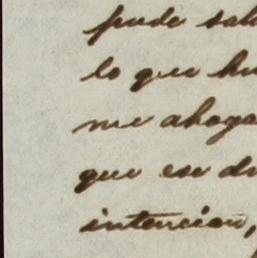 pude sal
lo que hu
me ahoga
que ese d
intencion,